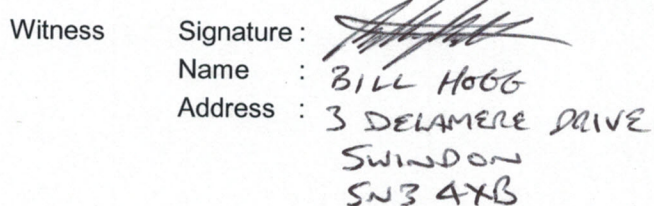 Witness Signature :
Name : BILL HOGG
Address : 3 DELAMERE DRIVE
SWINDON
SN3 4XB